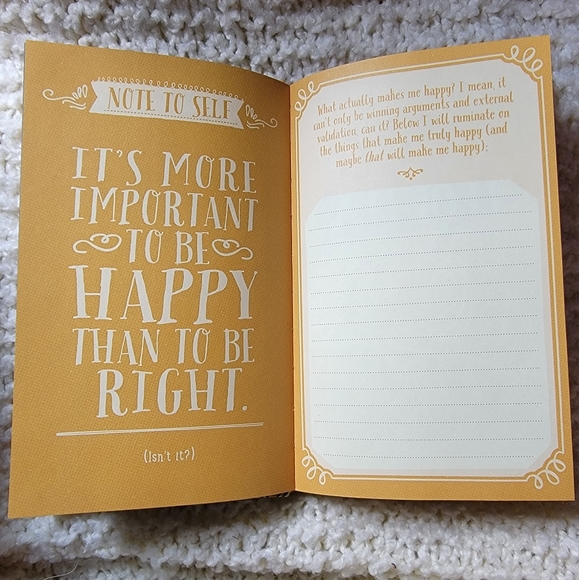 NOTE TO SELF
IT'S MORE
IMPORTANT
TO BE
HAPPY
THAN TO BE
RIGHT.
(Isn't it?)
What actually makes me happy? I mean, it
can't only be winning arguments and external
validation, can it? Below I will ruminate on
the things that make me truly happy (and
maybe that will make me happy):